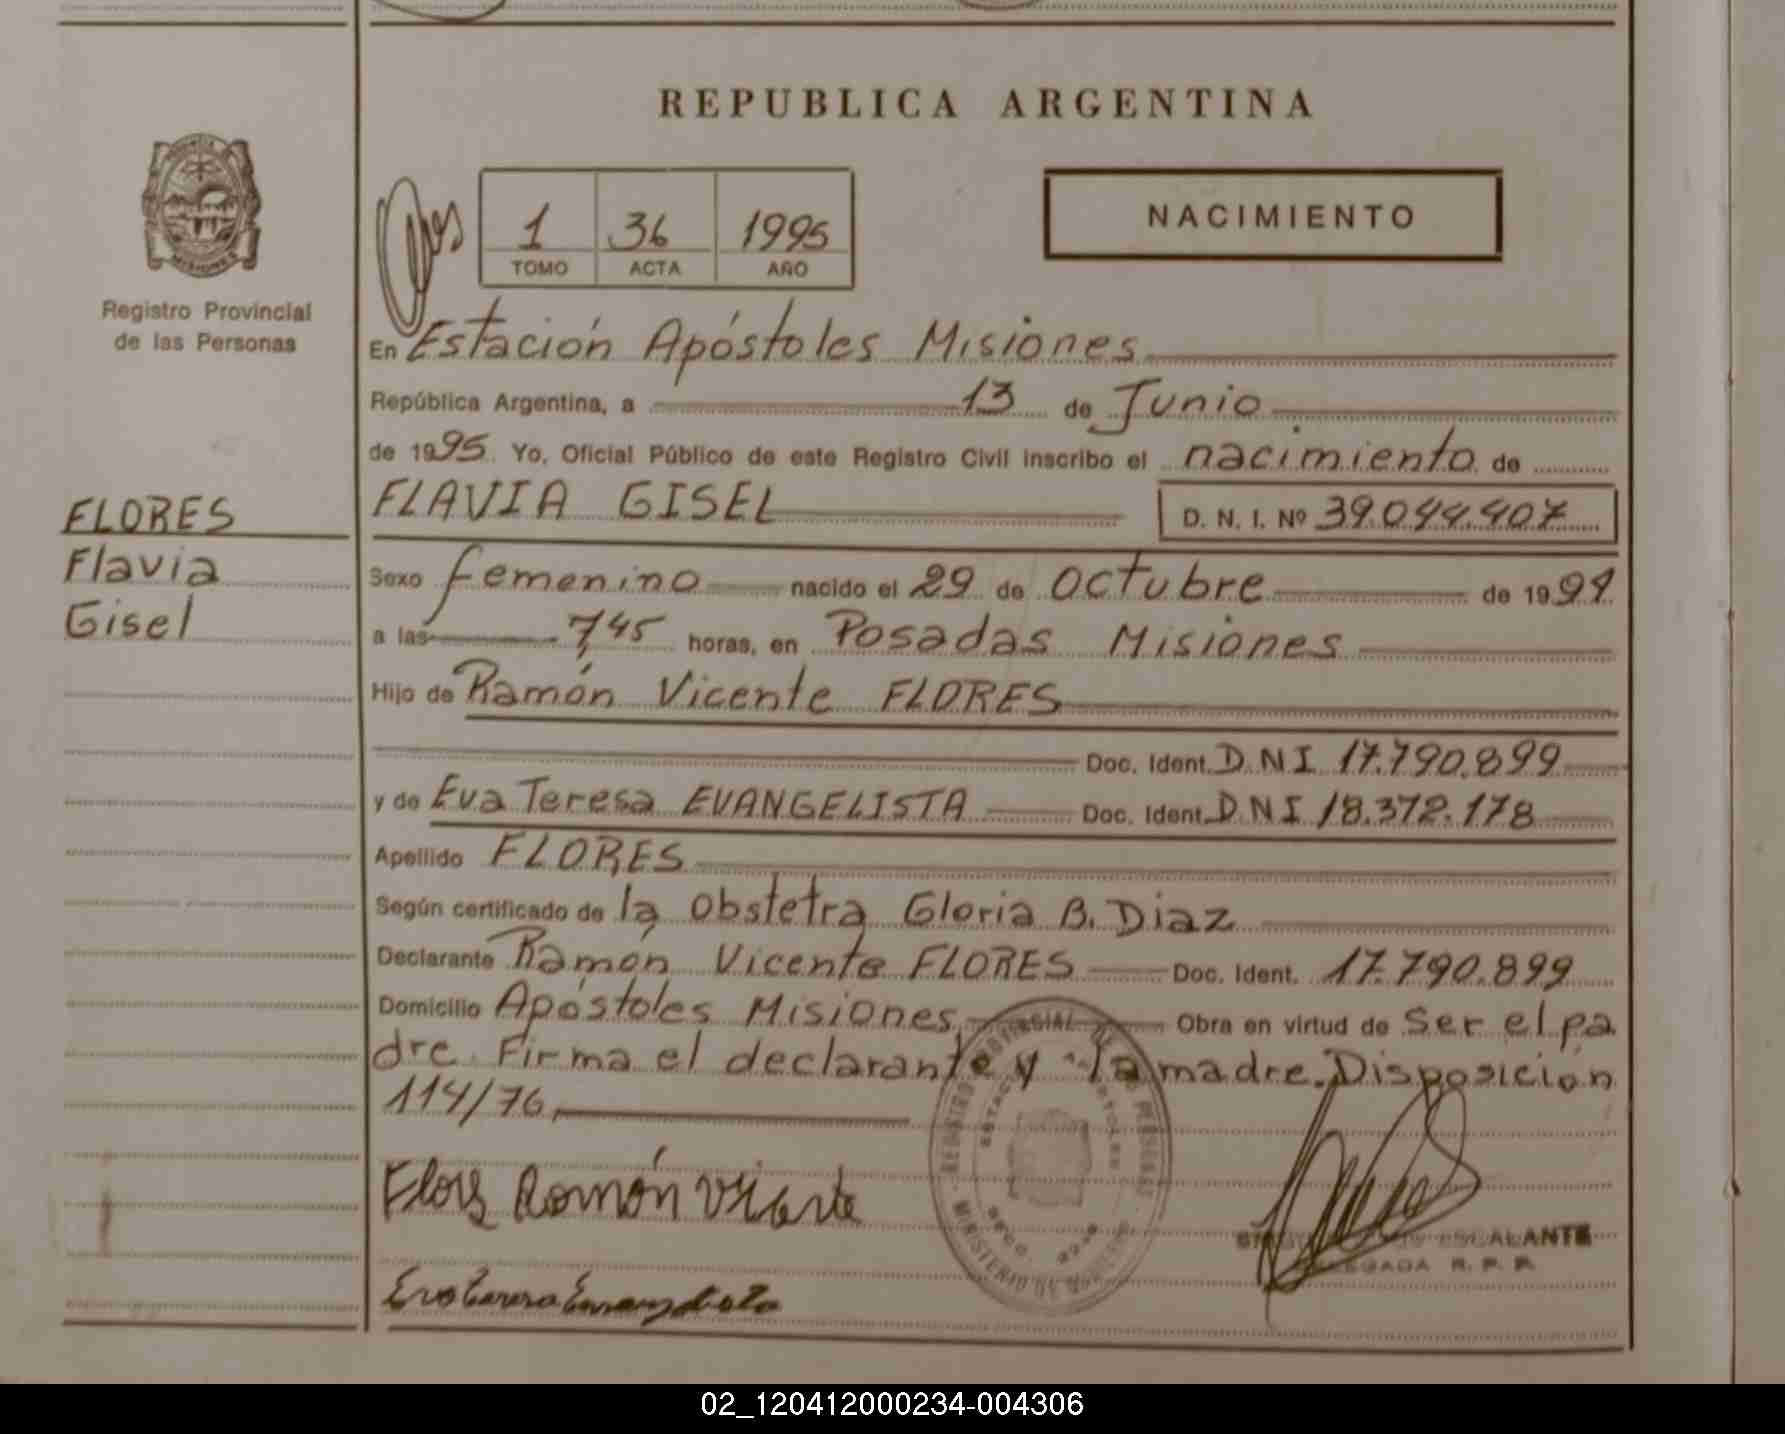 REPUBLICA ARGENTINA
1 36 1995
TOMO ACTA AÑO
NACIMIENTO
MISIONES
Registro Provincial
de las Personas
En Estación Apóstoles Misiones
República Argentina, a 13 de Junio
de 1995 Yo, Oficial Público de este Registro Civil inscribo el nacimiento de
FLAVIA GISEL D. N. I. Nº 39.044.407
FLORES
Flavia
Gisel
Sexo femenino nacido el 29 de octubre de 1994
a las 7,45 horas, en Posadas Misiones
Hijo de Ramón Vicente FLORES
Doc. Ident. DNI 17.790.899
y de Eva Teresa EVANGELISTA Doc. Ident. DNI 18.372.178
Apellido FLORES
Según certificado de la obstetra Gloria B. Diaz
Declarante Ramón Vicente FLORES Doc. Ident. 17.790.899
Domicilio Apóstoles Misiones Obra en virtud de ser el pa
dre. Firma el declarante y la madre. Disposición
114/76
Flores Ramón Vicente
ESCALANTE
DELEGADA R. P. P.
02_120412000234-004306